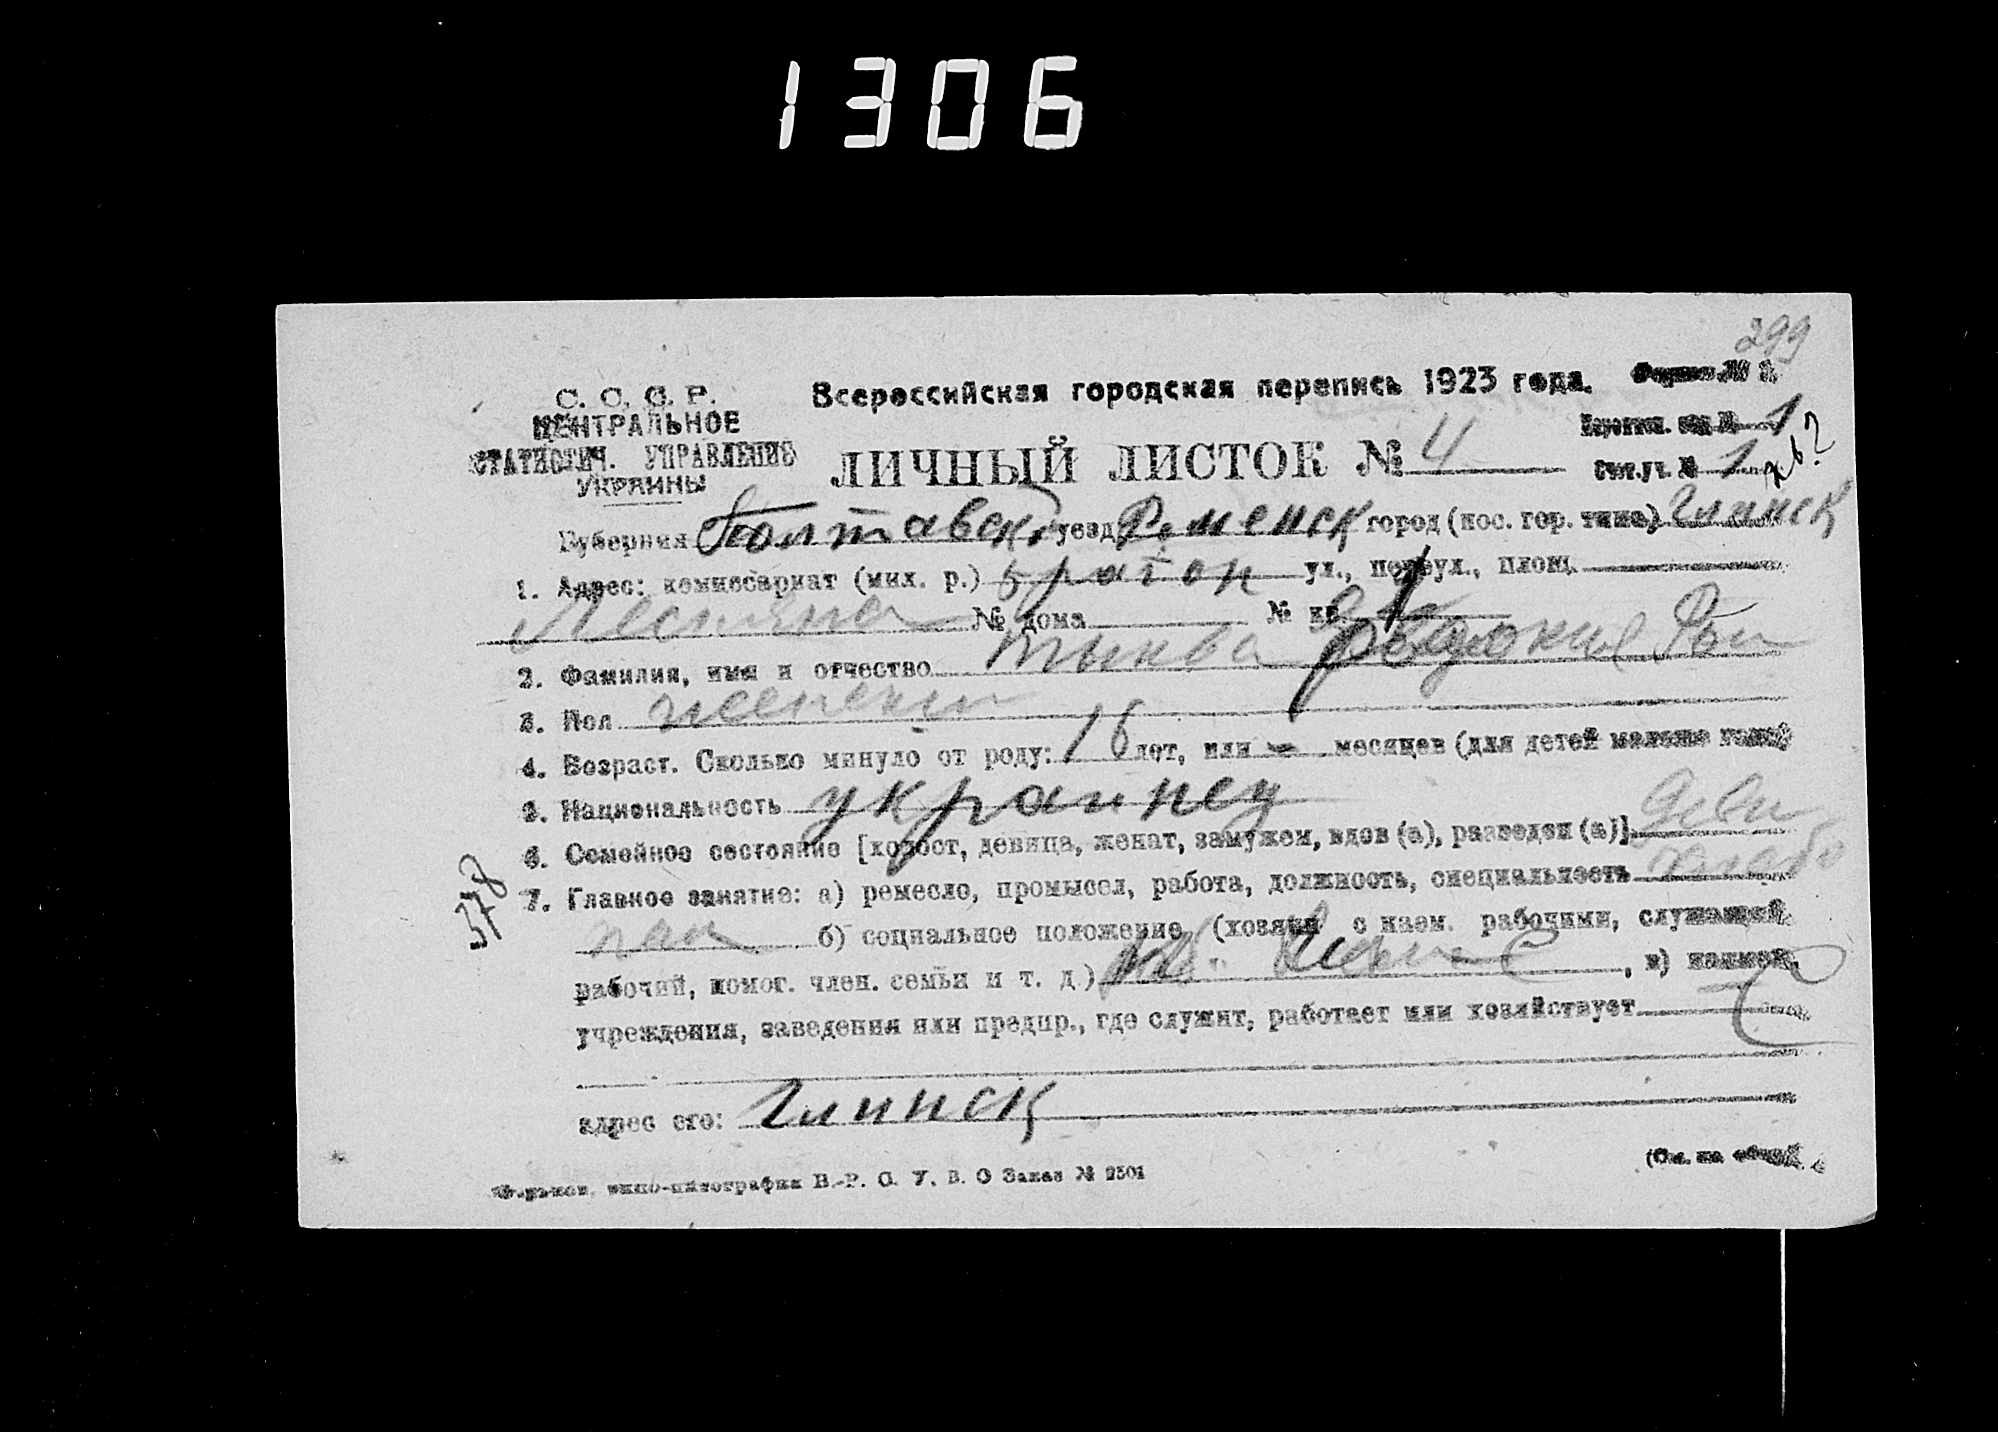 1306
299
С. С. С. Р.
ЦЕНТРАЛЬНОЕ
СТАТИСТИЧ. УПРАВЛЕНИЕ
УКРАИНЫ
Всероссийская городская перепись 1923 года. Форма № 2.
ЛИЧНЫЙ ЛИСТОК № 4
1
Счет.уч. № 1
Губерния Полтавск уезд Роменск город (пос. гор. типа) Глинск
1. Адрес: комиссариат (мил. р.) 5 район ул., переул., площ.
№ дома № кв.
2. Фамилия, имя и отчество Тыква
3. Пол женски
4. Возраст. Сколько минуло от роду: 16 лет, или — месяцев (для детей моложе года)
5. Национальность украинец
6. Семейное состояние [холост, девица, женат, замужем, вдов (а), разведен (а)] деви
7. Главное занятие: а) ремесло, промысел, работа, должность, специальность
б) социальное положение (хозяин с наем. рабочими, служащий
рабочий, помог. член. семьи и т. д.) , в) наимен.
учреждения, заведения или предпр., где служит, работает или хозяйствует
адрес его: Глинск
378
типо-литография В.-Р. С. У. В. О Заказ № 2501
(См. на